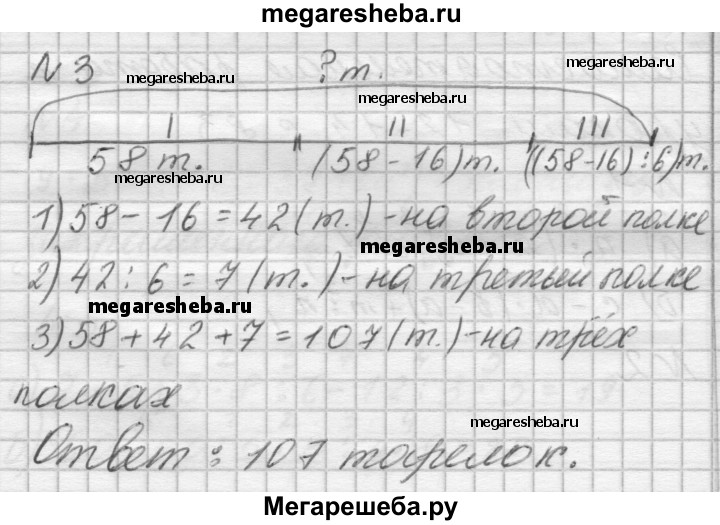 megaresheba.ru
№ 3 ? т.
megaresheba.ru megaresheba.ru megaresheba.ru
I II III
58 т. (58-16) т. ((58-16):6) т.
megaresheba.ru
1) 58 - 16 = 42 (т.) - на второй полке
megaresheba.ru
2) 42 : 6 = 7 (т.) - на третьй полке
megaresheba.ru
3) 58 + 42 + 7 = 107 (т.) - на трёх
полках
megaresheba.ru
Ответ: 107 тарелок.
Мегарешеба.ру